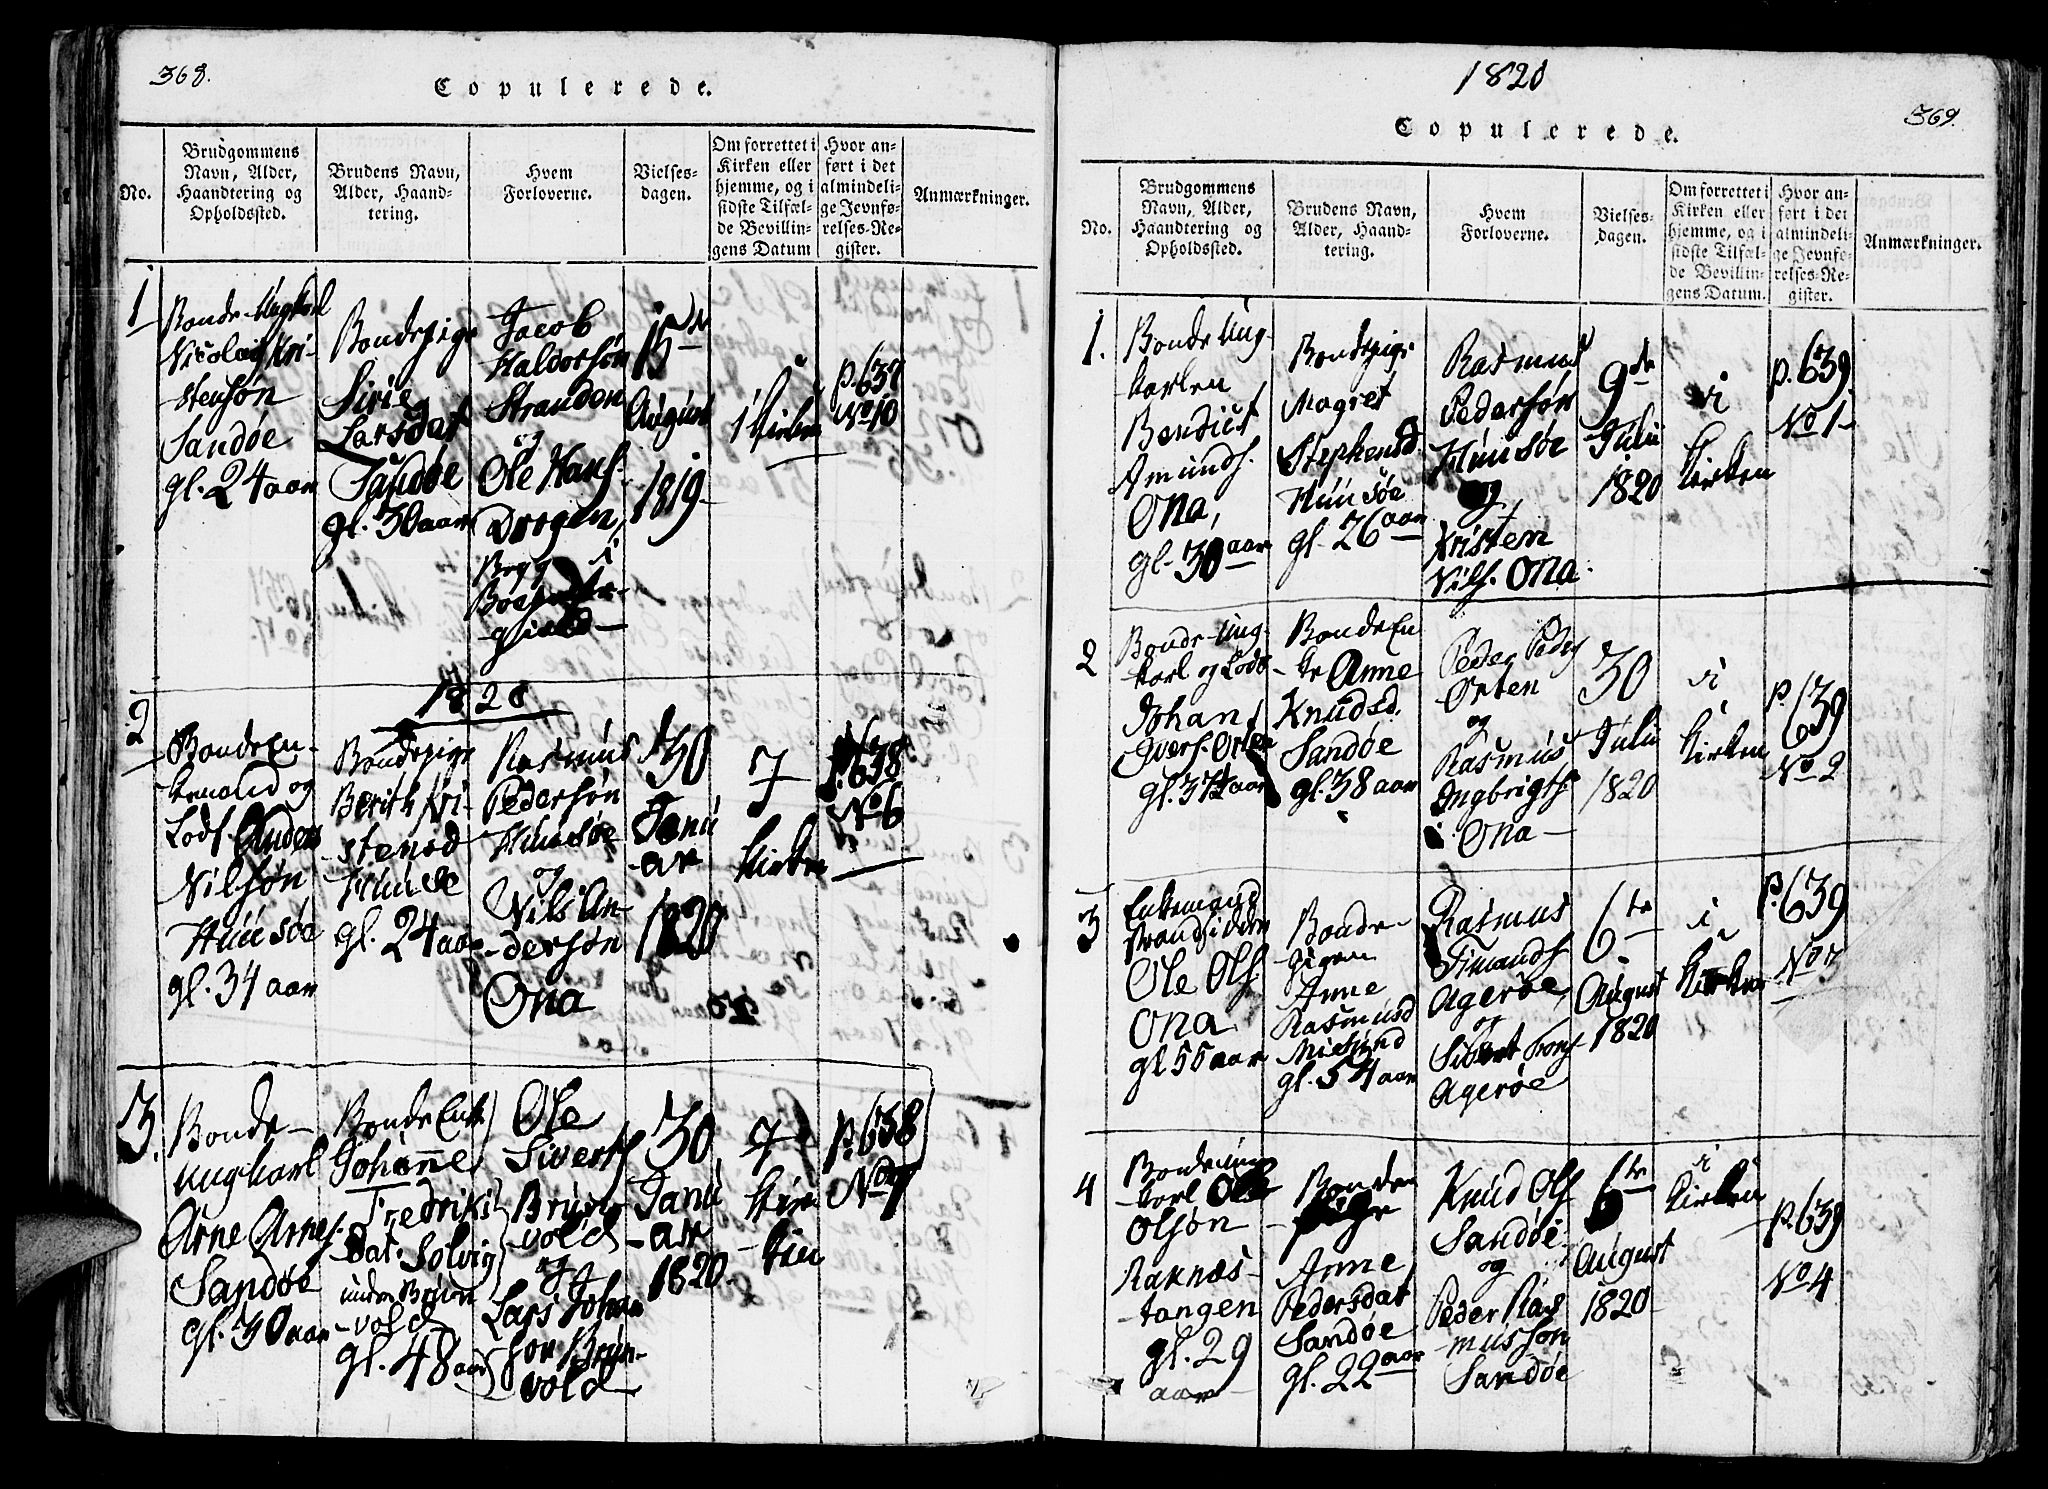 368.
Copulerede.
No.
Brudgommens
Navn, Alder,
Haandtering og
Opholdssted.
Brudens Navn,
Alder, Haand-
tering.
Hvem
Forloverne.
Vielses-
dagen.
Om forrettet i
Kirken eller
hjemme, og i
sidste Tilfæl-
de Bevillin-
gens Datum
Hvor an-
ført i det
almindeli-
ge Jevnfø-
relses-Re-
gister.
Anmærkninger.
1
Bonde-Ungkarl
Nicolai Kri-
stensøn
Sandøe
gl. 24 aar
Bondepige
Sirie
Larsdat
Sandøe
gl. 30 aar
Jacob
Haldorsøn
Stranden
og
Ole Hans.
Drogen,
Begge i
15de
August
1819
i Kirken
p. 637
No 10
1820
2
Bonde En-
kemand og
Lods Anders
Nilsøn
Huusøe
gl. 34 aar
Bondepige
Berith Kri-
stensd
Huusøe
gl. 24 aar
Rasmus
Pedersøn
Huusøe
og
Nils An-
dersøn
Ona
30
Janu
-ar
1820
i
Kirken
p. 638
No 6
3.
Bonde-
ungkarl
Arne Arnes.
Sandøe
gl. 30 aar
Bonde Enk
Johanne
Fredriki
Dat. Solvig
under Bruun
-vold
gl. 48 aar
Ole
Siverts
Bruun
-vold
og
Lars Johan
for Bruun-
vold
30
Janu
-ar
1820.
i
Kir
-ken
p. 638
No 7
1820
369.
Copulerede.
No.
Brudgommens
Navn, Alder,
Haandtering og
Opholdssted.
Brudens Navn,
Alder, Haand-
tering.
Hvem
Forloverne.
Vielses-
dagen.
Om forrettet i
Kirken eller
hjemme, og i
sidste Tilfæl-
de Bevillin-
gens Datum.
Hvor an-
ført i det
almindeli-
ge Jevnfø-
relses-Re-
gister.
Anmærkninger.
1.
Bonde Ung-
karlen
Bendict
Amunds.
Ona,
gl. 30 aar
Bondepige
Magret
Stephensd.
Huusøe
gl. 26 aar
Rasmus
Pedersøn
Huusøe
og
Kristen
Nils. Ona.
9de
Julii
1820
i
Kirken
p. 639.
No 1-
2
Bonde-Ung-
karl og Lods
Johan
Ivers. Orten
aar
Bonde En
-ke Anne
Knudsd.
Sandøe
gl. 38 aar
Peder Peders
Orten
og
Rasmus
Ingbrigts.
Ona-
30
Julii
1820
i
Kirken
p. 639
No 2
3
Enkemand
strandsidder
Ole Ols.
Ona
gl 55 aar
Bonde-
-pigen
Anne
Rasmusd
Misund
gl. 54 aar
Rasmus
Simonds.
Agerøe,
og
Sivert
Agerøe
6te
August
1820
i
Kirken
p. 639
No 3
4
Bonde ung
-karl Ole
Olsøn
Raknæs-
-tangen
gl. 29
aar
Bonde
-pige
Anne
Pedersdat
Sandøe
gl. 22 aar
Knud Ols
Sandøe
og
Peder Ras
-mussøn
Sandøe
6te
August
1820
i
Kirken
p. 639
No 4